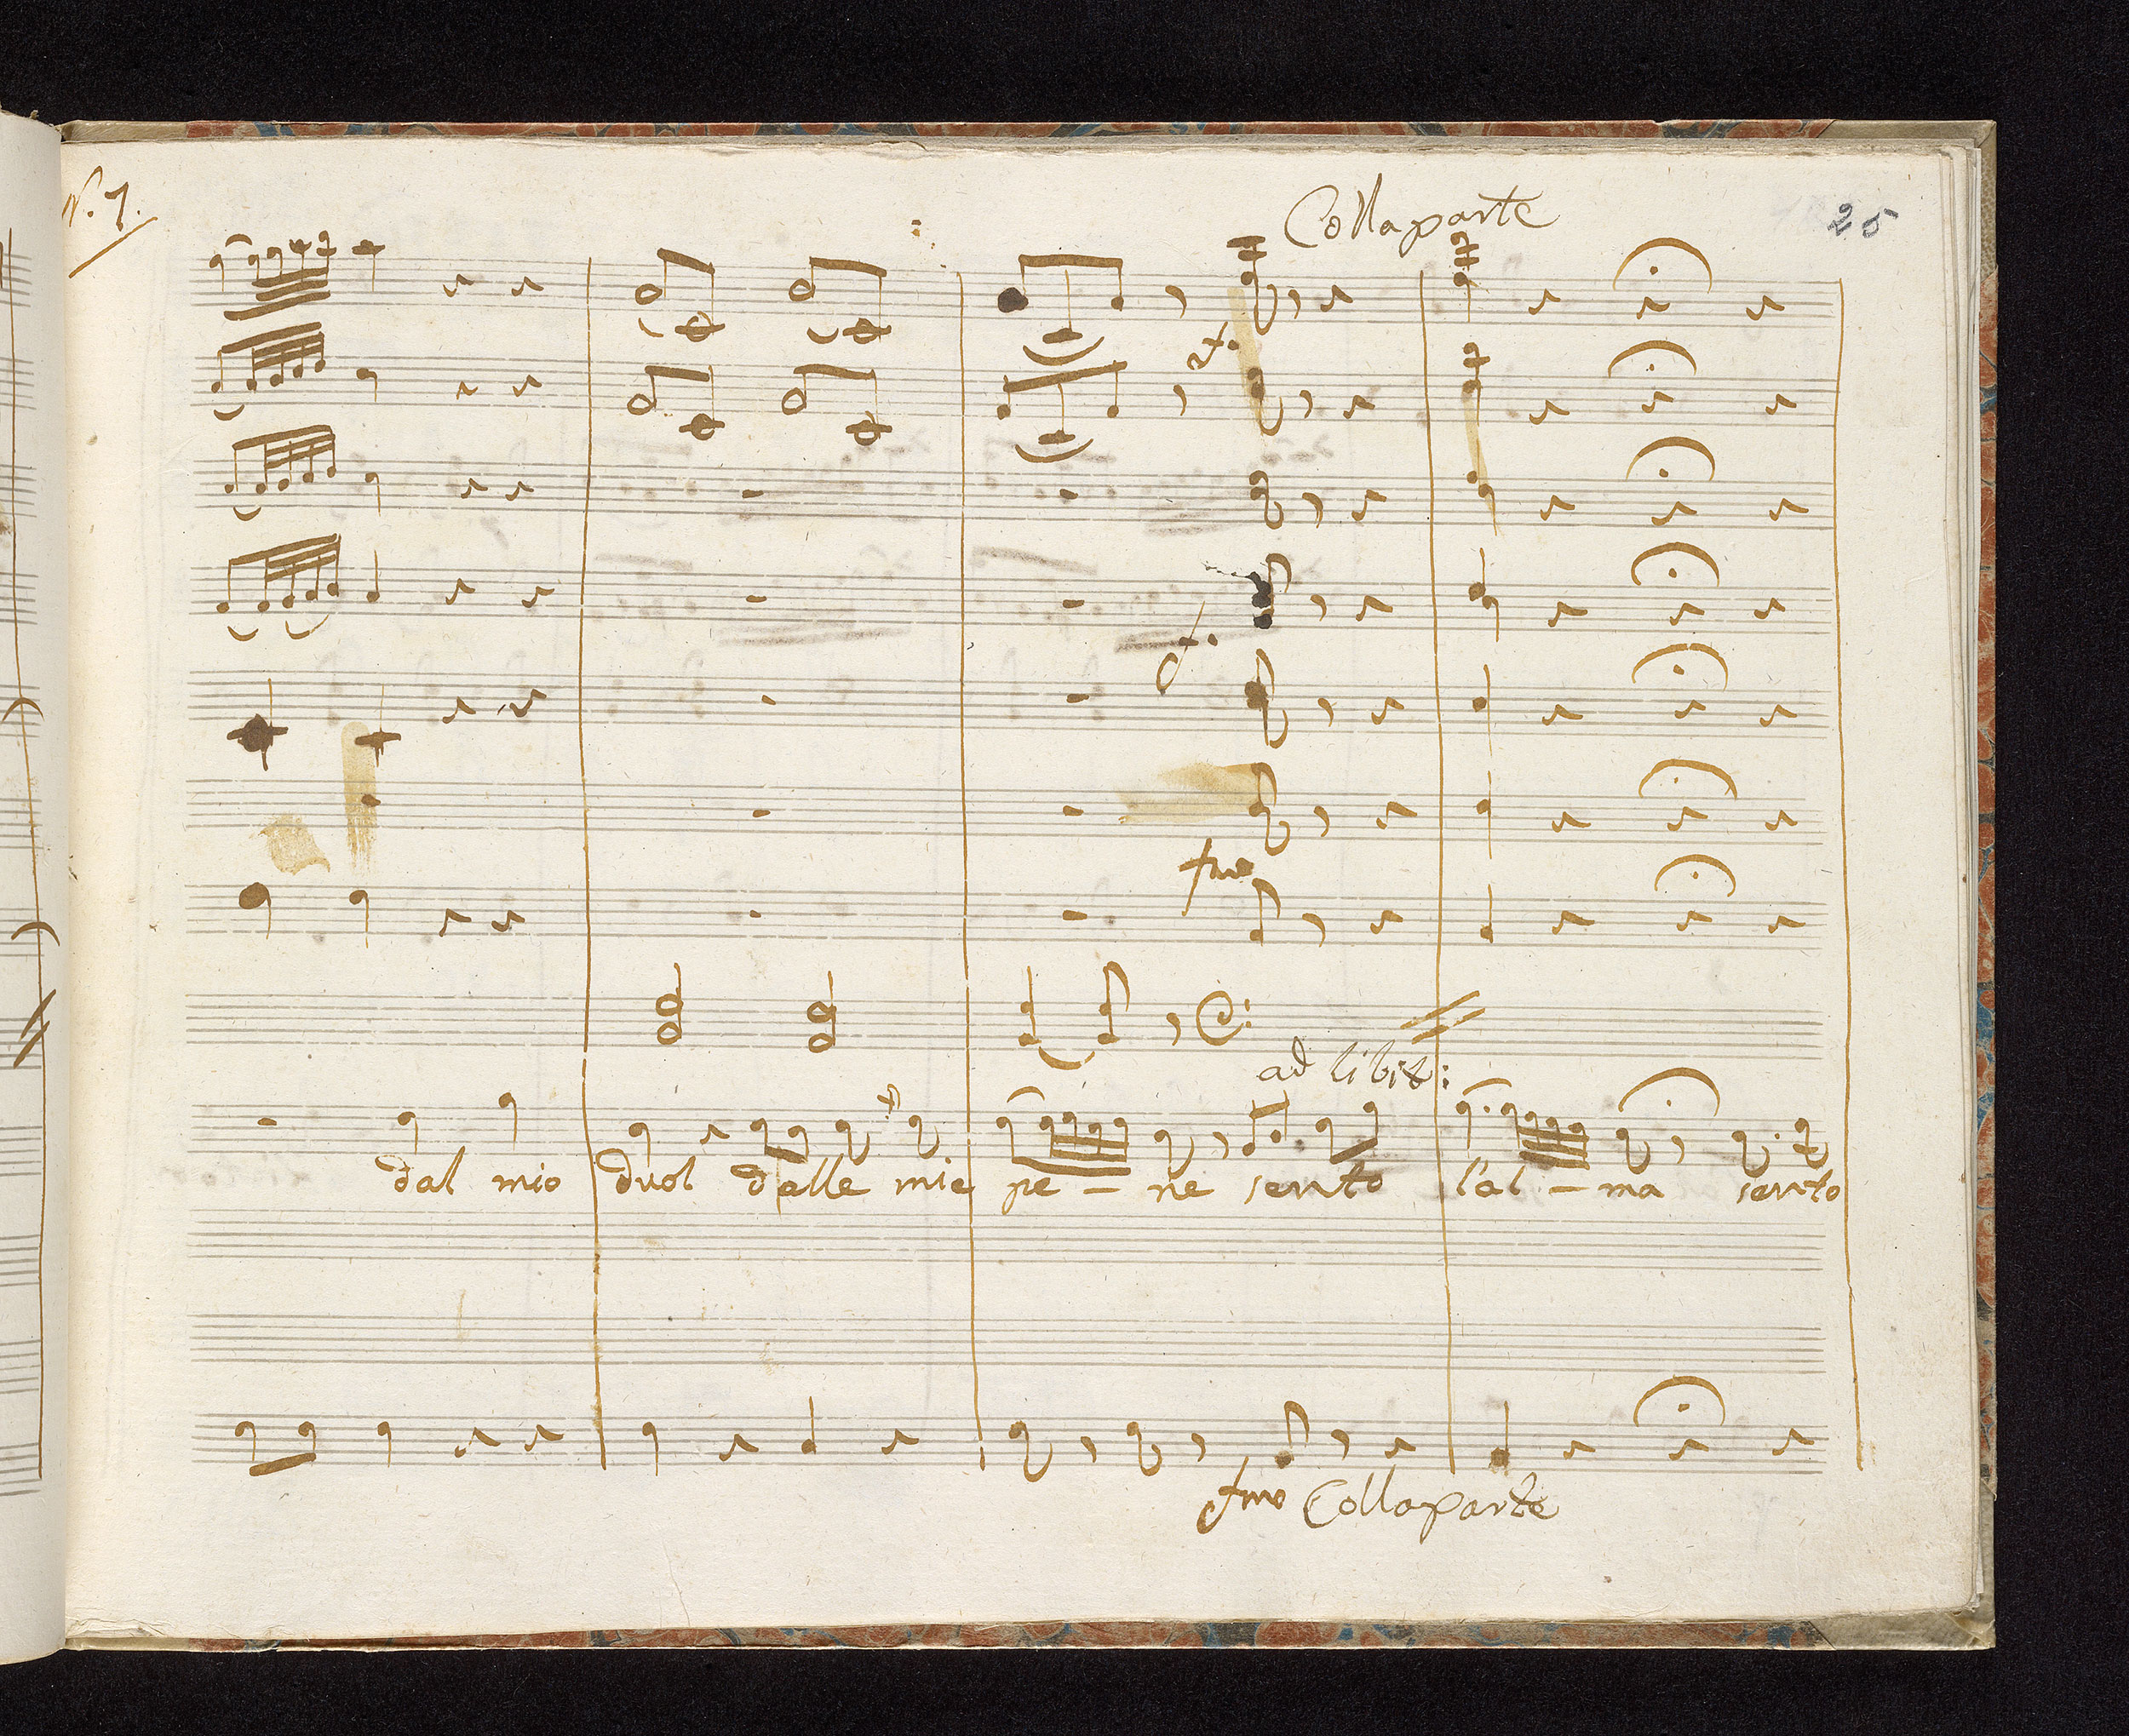 N. 7.
Collaparte
25
f.
f.
fmo
ad libit:
dal mio duol dalle mie pe - ne sento l'al - ma sento
fmo Collaparte